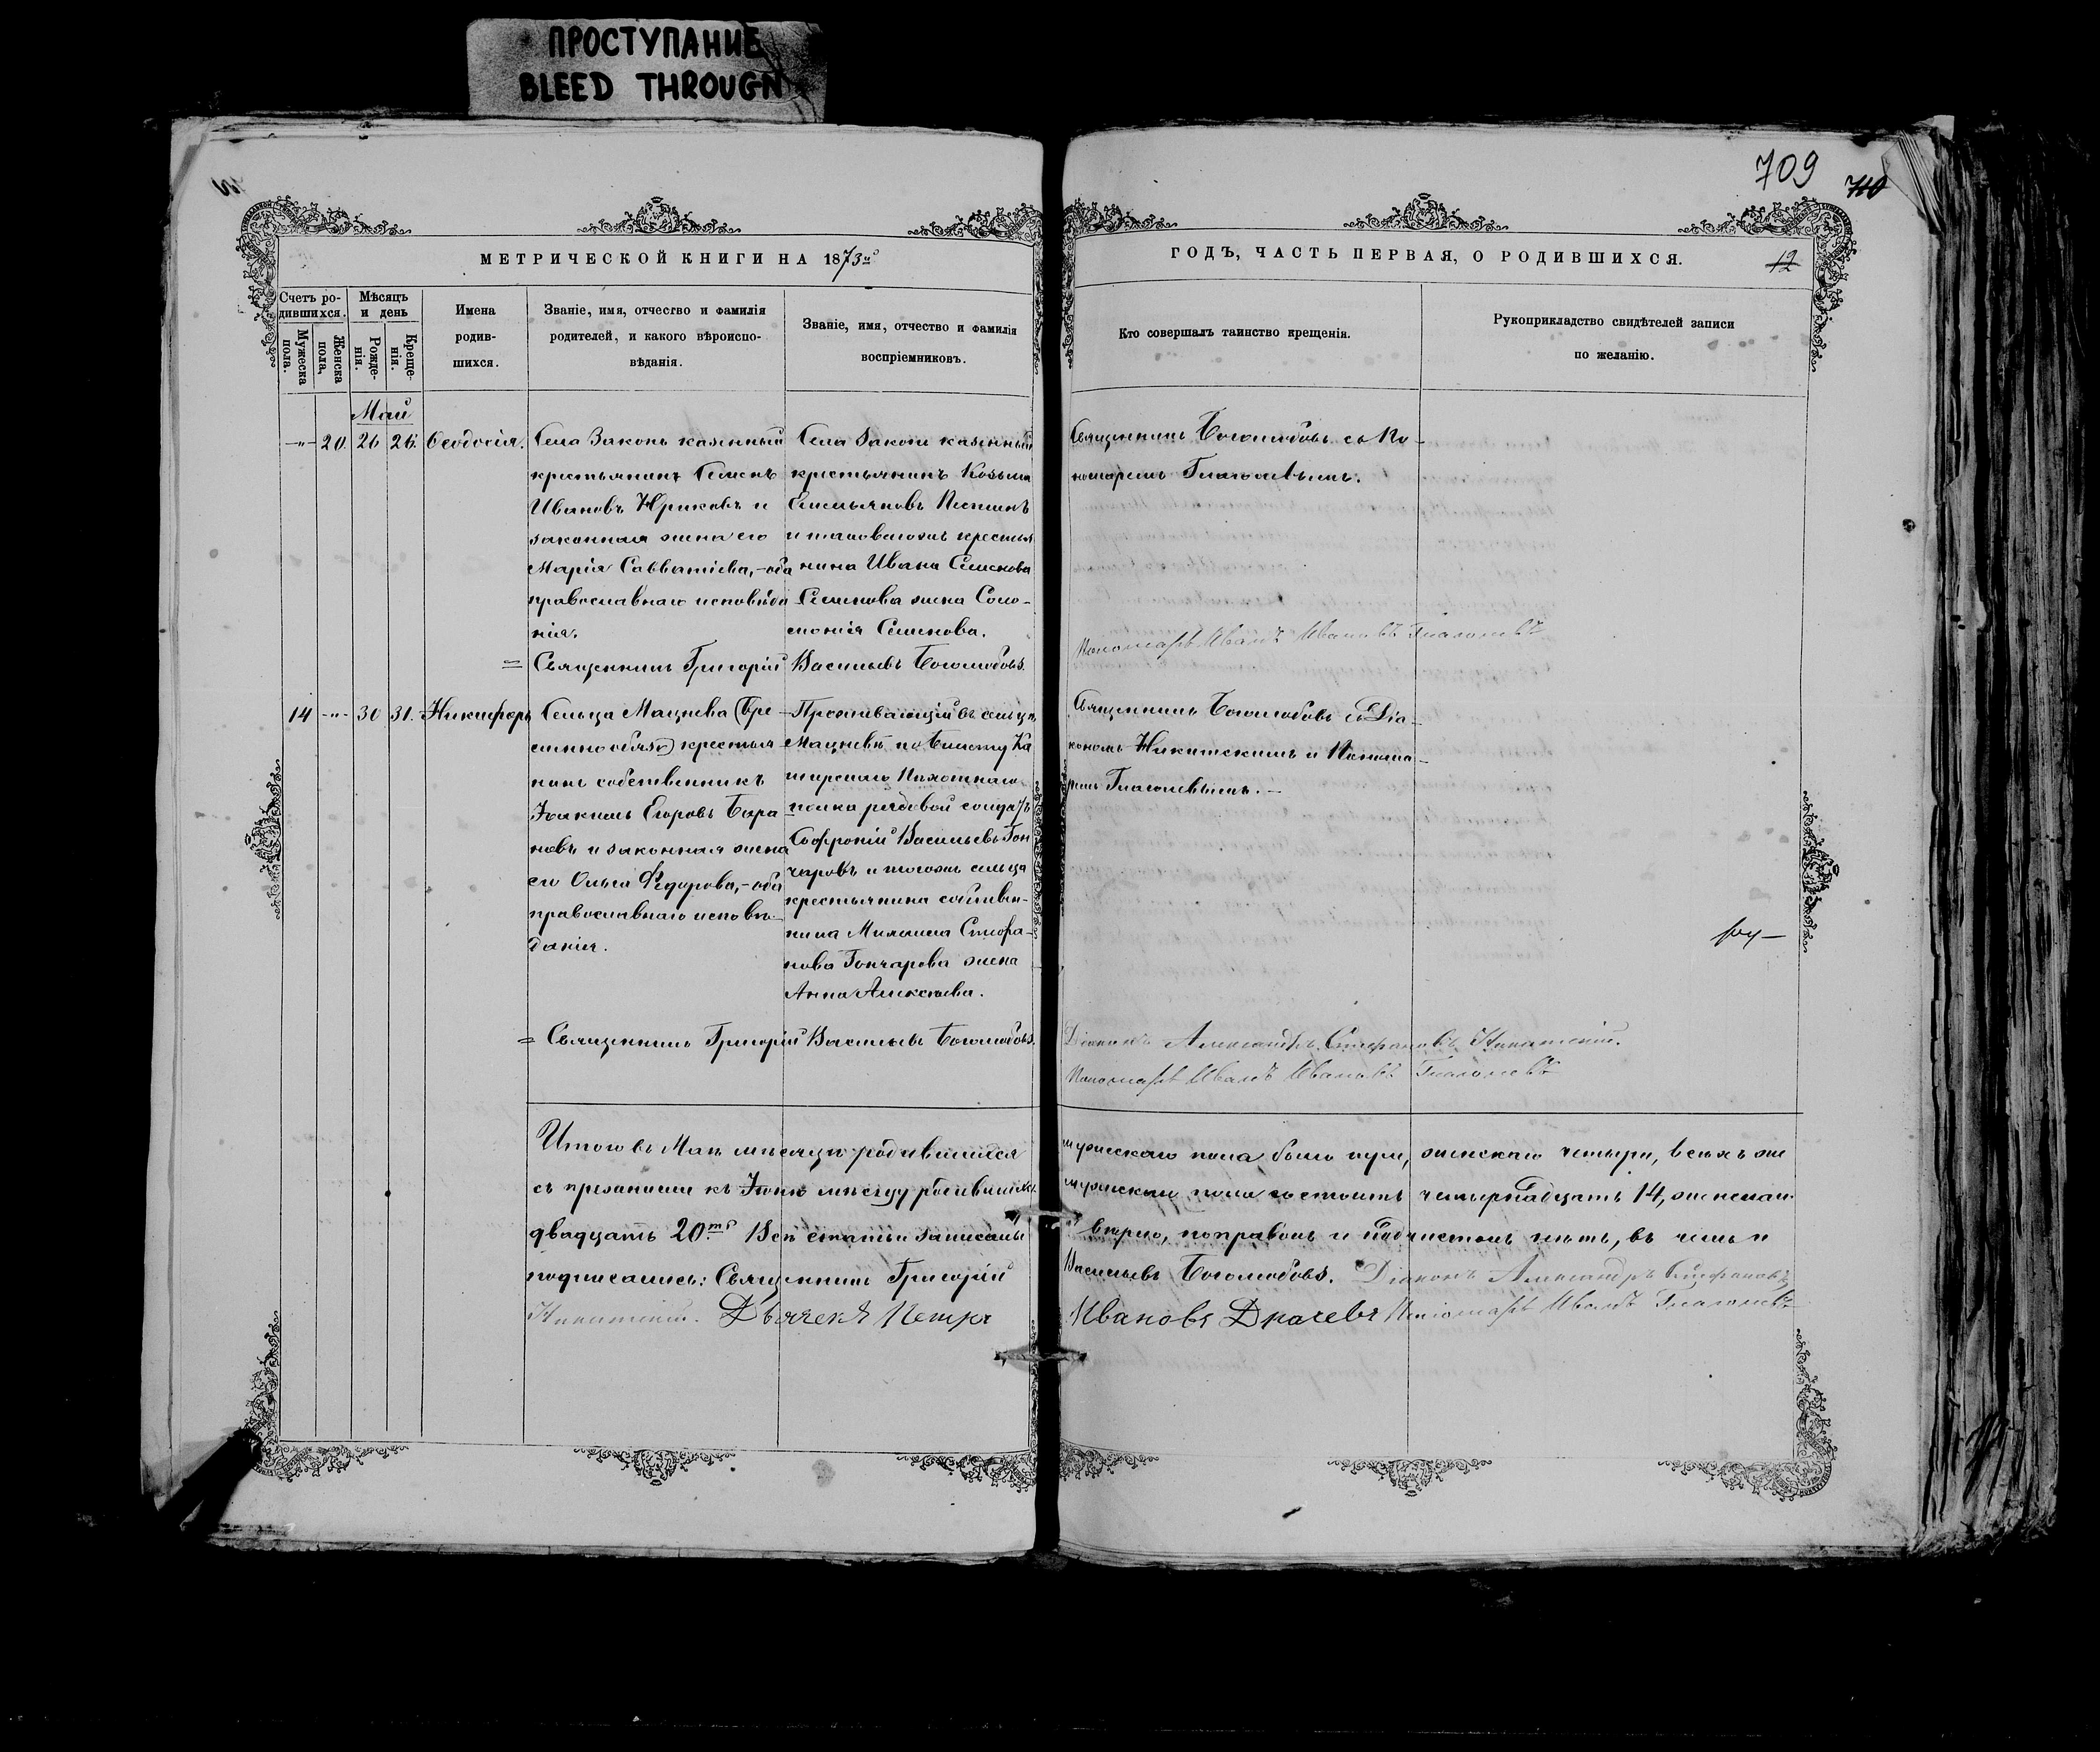 ПРОСТУПАНИЕ
BLEED THROUGN
709
710
МЕТРИЧЕСКОЙ КНИГИ НА 1873й
ГОДЪ, ЧАСТЬ ПЕРВАЯ, О РОДИВШИХСЯ.
12
Счетъ ро-
дившихся.
Мужеска
пола.
Женска
пола.
Мѣсяцъ
и день
Рожде-
нія.
Креще-
нія.
Имена
родив-
шихся.
Званіе, имя, отчество и фамилія
родителей, и какого вѣроиспо-
вѣданія.
Званіе, имя, отчество и фамилія
воспріемниковъ.
Кто совершалъ таинство крещенія.
Рукоприкладство свидѣтелей записи
по желанію.
Май
-„- 20. 26 26. Ѳеодосія.
Села Законъ казенный
крестьянинъ Семенъ
Ивановъ Юриковъ и
законная жена его
Марія Савватіева,-оба
православнаго исповѣда
нія.
Села Закони казенный
крестьянинъ Козьма
Емельяновъ
и таковагожъ крестья
нина Ивана Семенова
Семенова жена Соло-
монія Семенова.
Священникъ Боголюбовъ съ По-
номаремъ Глаголевымъ.
= Священникъ Григорій Васильевъ Боголюбовъ.
Пономарь Иванъ Ивановъ Глаголевъ
14 -„- 30 31. Никифоръ
Сельца Мацнева (Вре-
менно обяз) крестья
нинъ собственникъ
Іоакимъ Егоровъ Бара
новъ и законная жена
его Ольга Ѳедорова,-оба
православнаго исповѣ-
данія.
Проживающій въ сельцѣ
Мацневѣ по билету Ка
ширскаго Пѣхотнаго
полка рядовой солдатъ
Софроній Васильевъ Гон
чаровъ и тогожъ сельца
крестьянина собствен-
ника Михаила Стефа-
нова Гончарова жена
Анна Алексѣева.
Священникъ Боголюбовъ съ Діа-
кономъ Никитскимъ и Понома-
ремъ Глаголевымъ.-
= Священникъ Григорій Васильевъ Боголюбовъ.
Діаконъ Александръ Стефановъ Никитскій.
Пономарь Иванъ Ивановъ Глаголевъ
Итого въ Маѣ мѣсяцѣ родившихся мужескаго пола было три, женскаго четыре, всѣхъ же
съ прежними къ Іюню мѣсяцу родившихся мужескаго пола состоитъ четырнадцать 14, женскаго
двадцать 20ть Всѣ статьи записаны вѣрно, поправокъ и подчистокъ нѣтъ, въ чемъ и
подписались: Священникъ Григорій Васильевъ Боголюбовъ. Діаконъ Александръ Стефановъ
Никитскій. Дьячекъ Петръ Ивановъ Драчевъ Пономарь Иванъ Глаголевъ